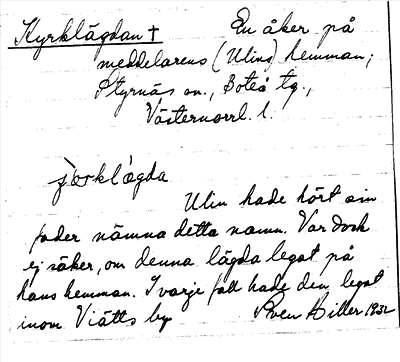 Kyrklägdan † En åker på
meddelarens (Ulins) hemman;
Styrnäs sn., Boteå tg.,
Västernorrl. l.
Ulin hade hört sin
fader nämna detta namn. Var dock
ej säker, om denna lägda legat på
hans hemman. I varje fall hade den legat
inom Viätts by Sven Hiller 1932